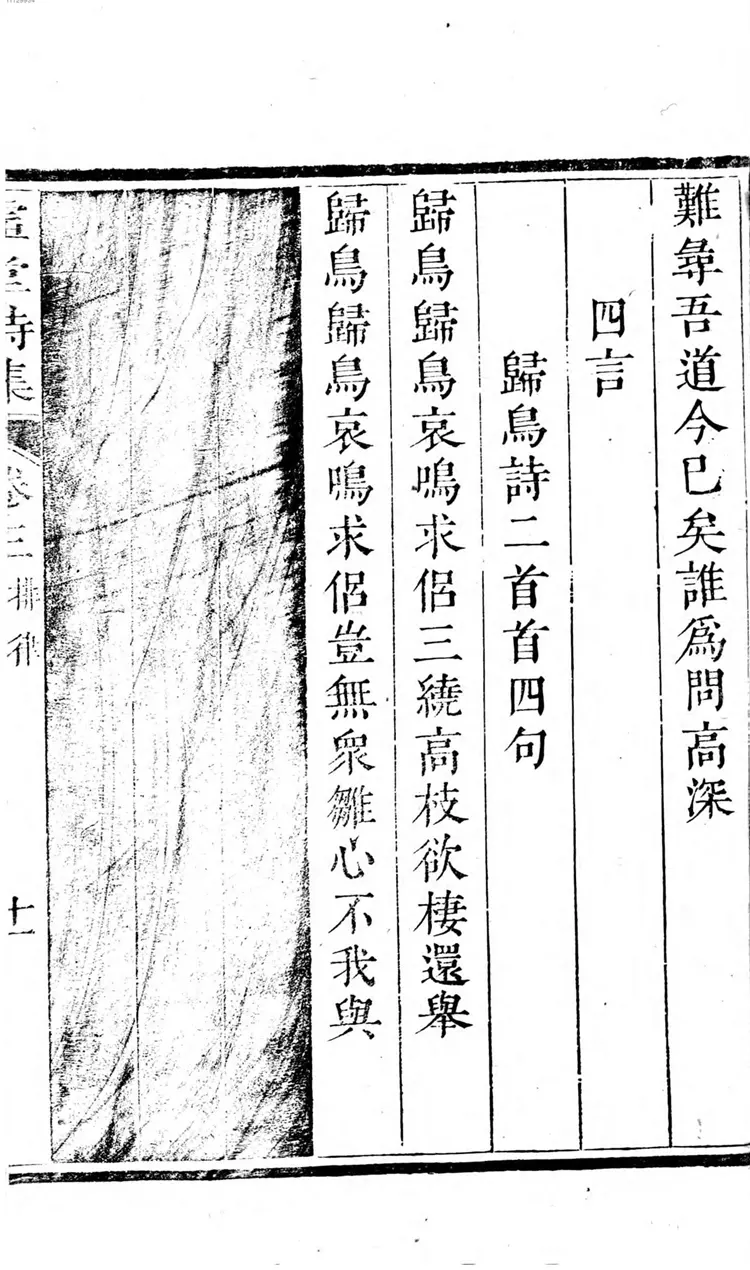 難尋吾道今已矣誰爲問高深
四言
歸鳥詩二首首四句
歸鳥歸鳥哀鳴求侶三繞高枝欲棲還舉
歸鳥歸鳥哀鳴求侶豈無衆雛心不我與
堂詩集
卷三 排律
十一